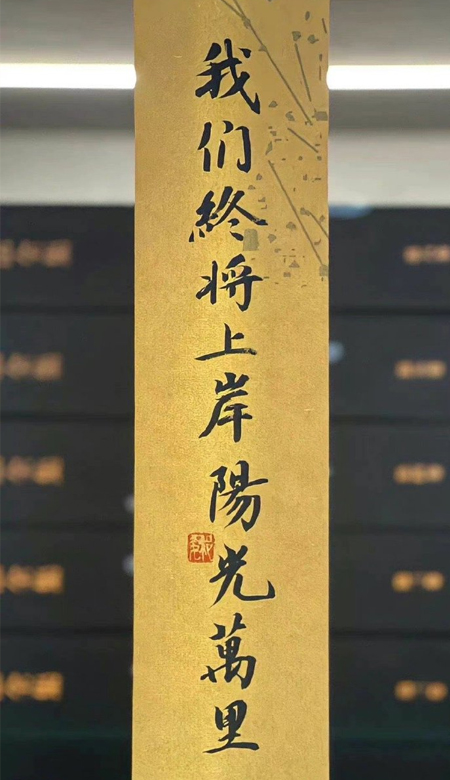 我们終将上岸陽光萬里